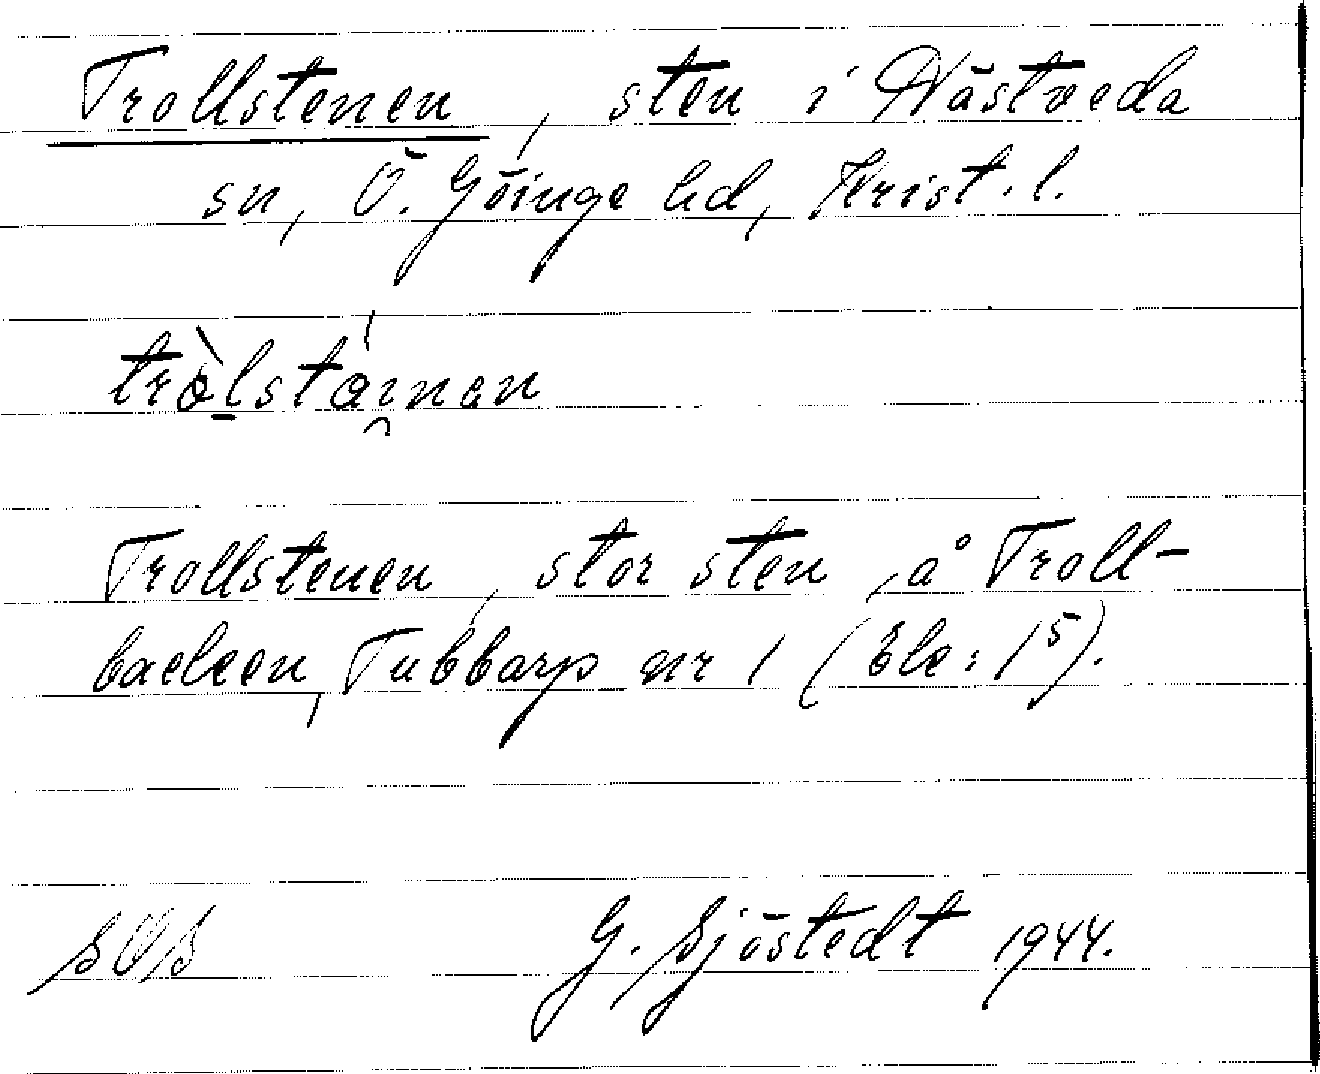 Trollstenen, sten i Västveda
sn, Ö. Göinge hd, Krist. l.
trolstainen
Trollstenen, stor sten, å Troll-
backen, Tubbarp nr 1 (Ek: 1⁵).
SOS G. Sjöstedt 1944.